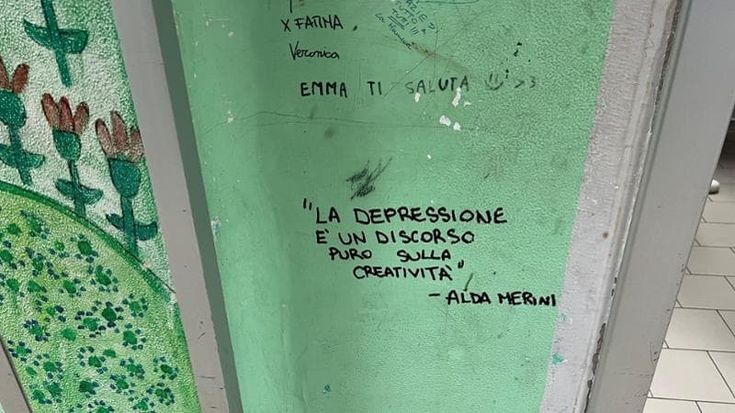 X FATINA
Veronica
EMMA TI SALUTA
"LA DEPRESSIONE
E' UN DISCORSO
PURO SULLA
CREATIVITÀ"
- ALDA MERINI